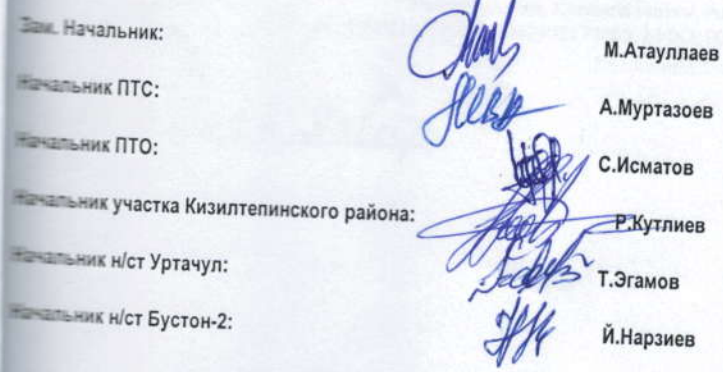 Зам. Начальник: М.Атауллаев
Начальник ПТС: А.Муртазоев
Начальник ПТО: С.Исматов
Начальник участка Кизилтепинского района: Р.Кутлиев
Начальник н/ст Уртачул: Т.Эгамов
Начальник н/ст Бустон-2: Й.Нарзиев